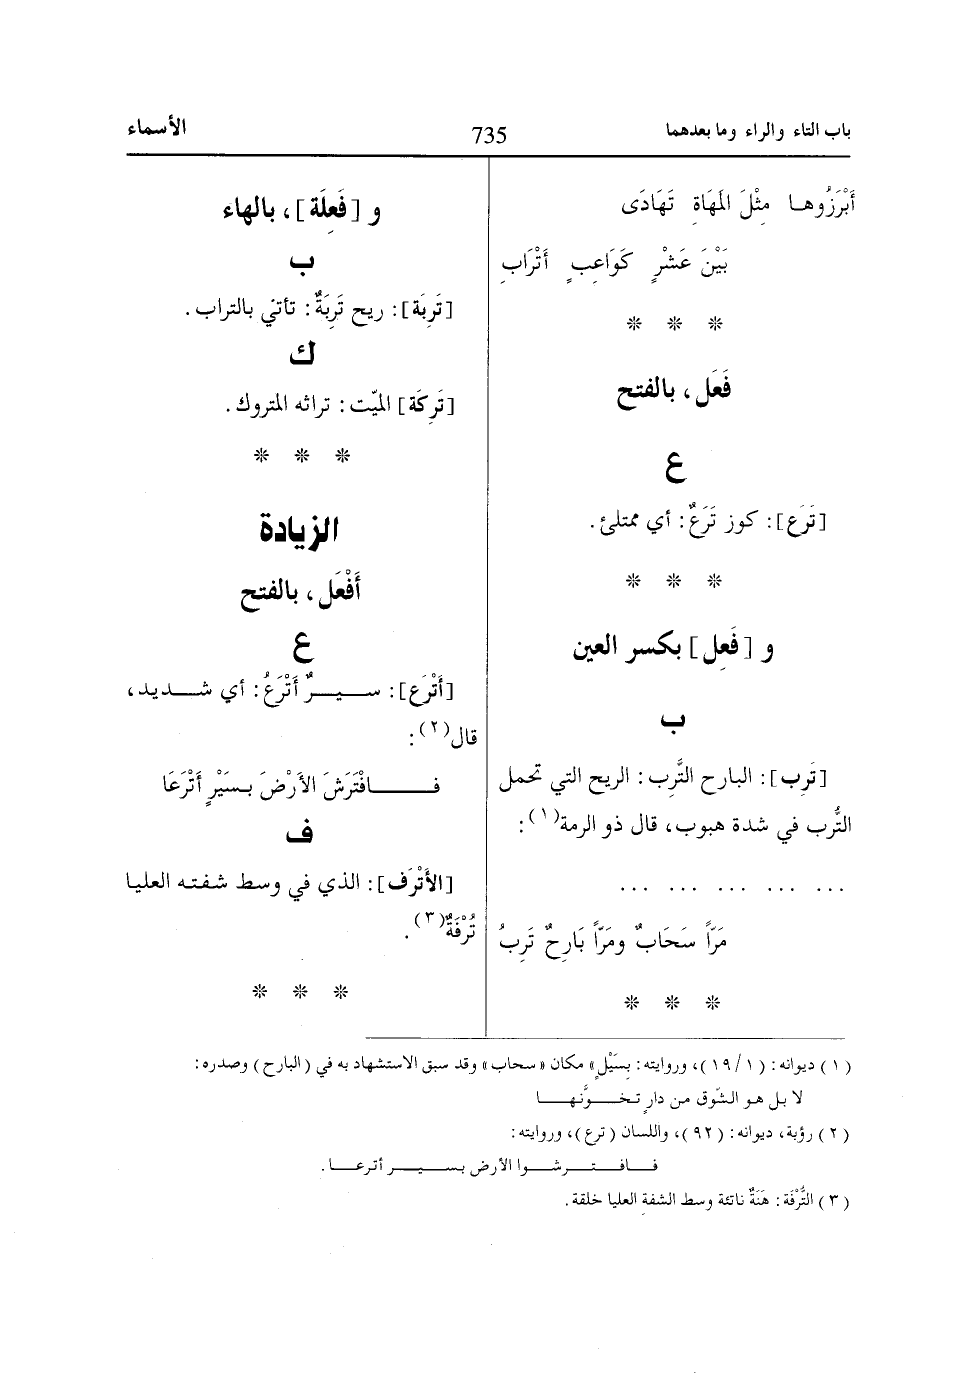 باب التاء والراء وما بعدهما 735 الأسماء
أَبْرَزُوها مِثْلَ المَهَاةِ تَهَادَى
بَيْنَ عَشْرٍ كَوَاعِبٍ أَتْرَابِ
* * *
فَعَل، بالفتح
ع
[تَرَع]: كوز تَرَعٌ: أي ممتلئ.
* * *
و [فَعِل] بكسر العين
ب
[تَرِب]: البارح التَّرِب: الريح التي تحمل
التُّرب في شدة هبوب، قال ذو الرمة(١):
... ... ... ... ...
مَرَّاً سَحَابٌ ومَرَّاً بَارِحٌ تَرِبُ
* * *
و [فَعِلَة]، بالهاء
ب
[تَرِبَة]: ريح تَرِبَةٌ: تأتي بالتراب.
ك
[تَرِكَة] الميّت: تراثه المتروك.
* * *
الزيادة
أَفْعَل، بالفتح
ع
[أَتْرَع]: سيرٌ أَتْرَعُ: أي شديد،
قال(٢):
فافْتَرَشَ الأَرْضَ بسَيْرٍ أَتْرَعَا
ف
[الأَتْرَف]: الذي في وسط شفته العليا
تُرْفَةٌ(٣).
* * *
(١) ديوانه: (١/ ١٩)، وروايته: بِسَيْلٍ» مكان «سحاب» وقد سبق الاستشهاد به في (البارح) وصدره:
لا بل هو الشّوق من دارٍ تخوَّنها
(٢) رؤبة، ديوانه: (٩٢)، واللسان (ترع)، وروايته:
فافترشوا الأرض بسير أترعا.
(٣) التُّرْفَة: هَنَةٌ ناتئة وسط الشفة العليا خلقة.